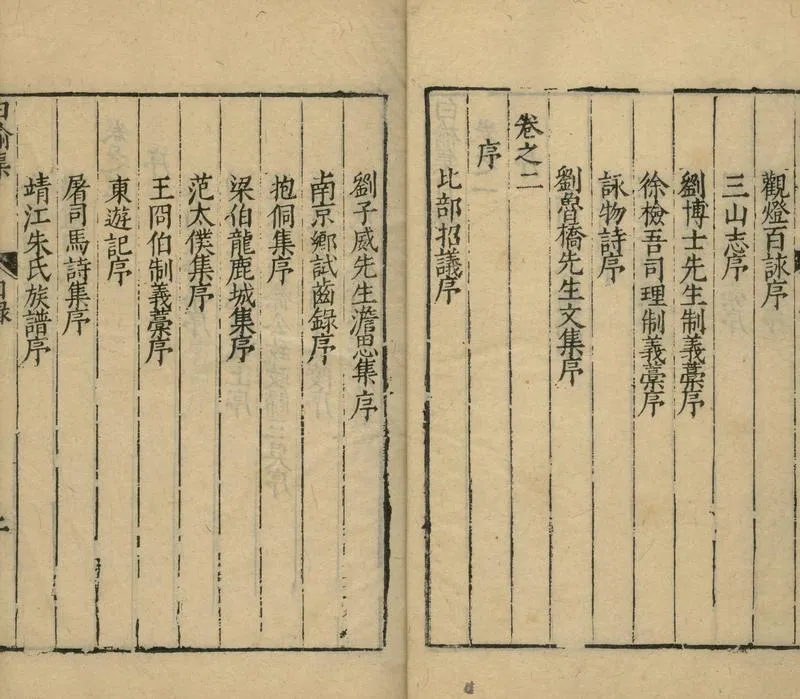 觀燈百詠序
三山志序
劉博士先生制義藁序
徐檢吾司理制義藁序
詠物詩序
劉魯橋先生文集序
卷之二
序
比部招議序
劉子威先生澹思集序
南京鄉試齒錄序
抱侗集序
梁伯龍鹿城集序
范太僕集序
王冏伯制義藁序
東遊記序
屠司馬詩集序
靖江朱氏族譜序
白榆集
目錄